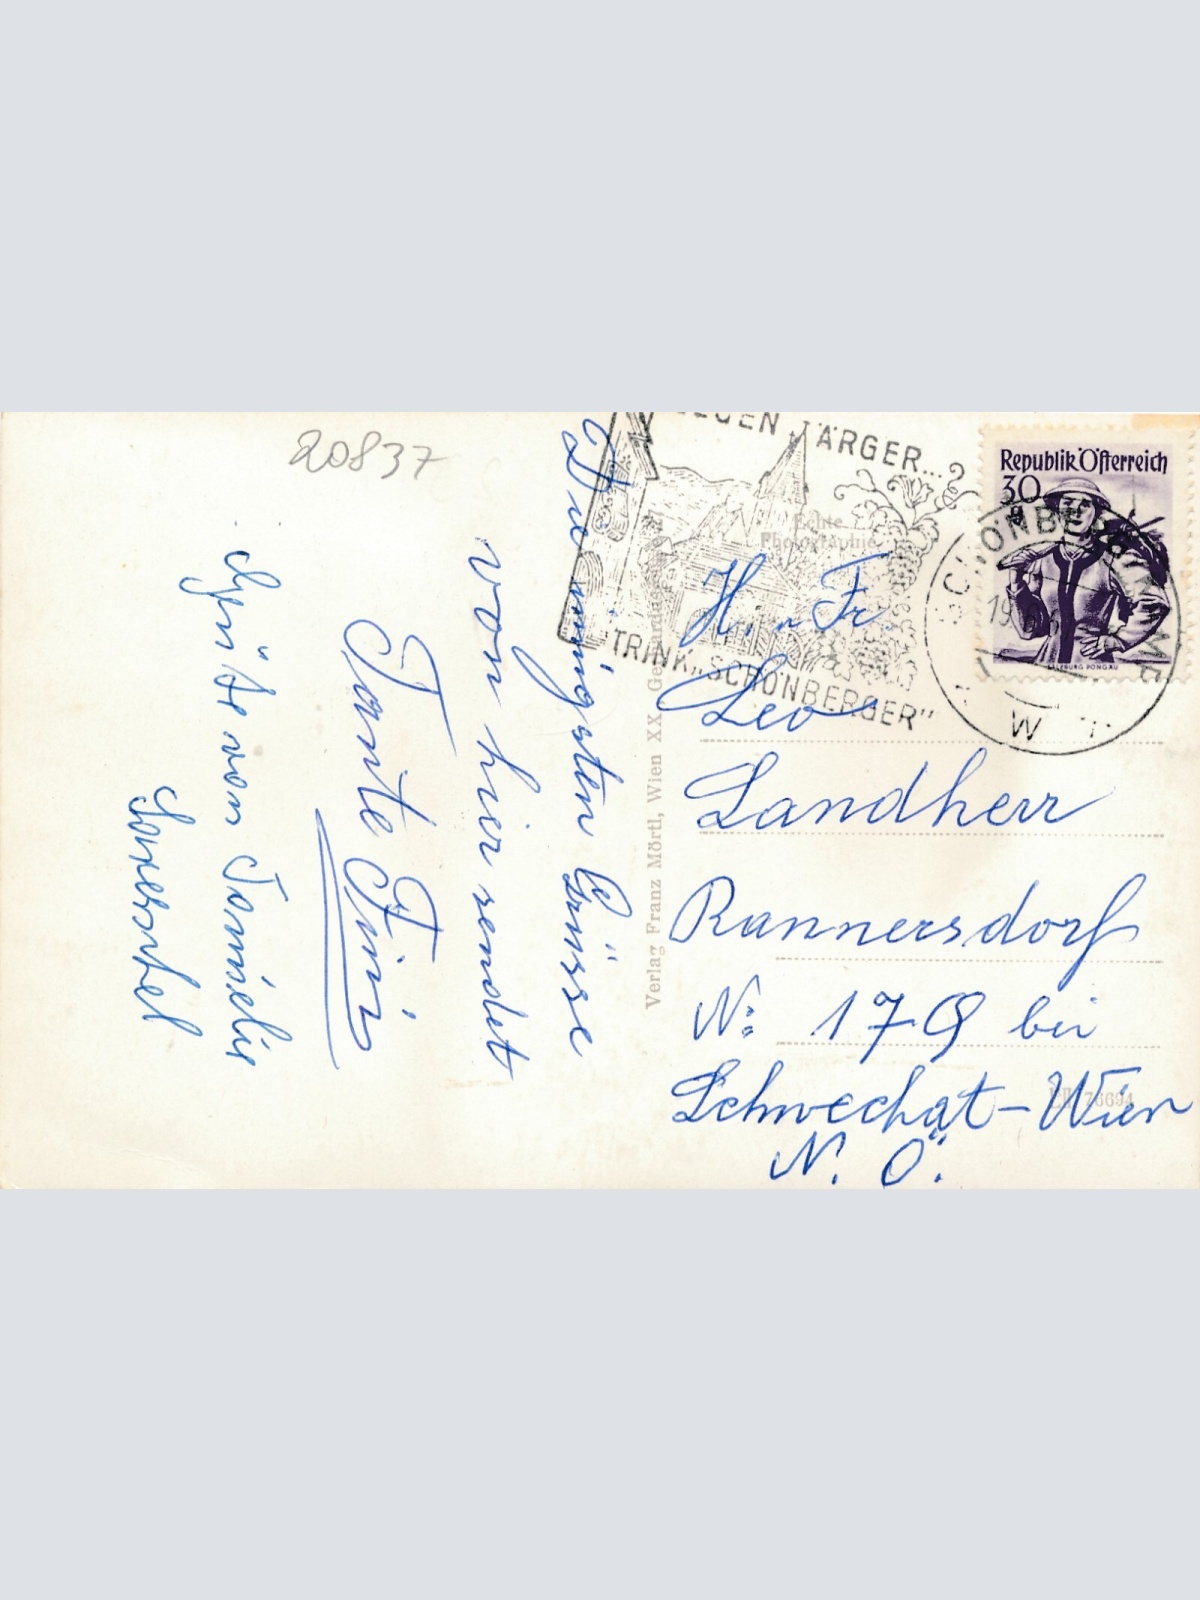 20837
Die innigsten Grüsse
von hier sendet
Tante Finis
Grüße von Familie
ÄRGER...?
TRINK „SCHÖNBERGER"
Echte
Photographie
Verlag Franz Mörtl, Wien XX
Republik Österreich
30
SALZBURG PONGAU
SCHÖNBERG
H. u Fr.
Leo
Landherr
Rannersdorf
Nº 179 bei
Schwechat-Wien
N. Ö.
76694